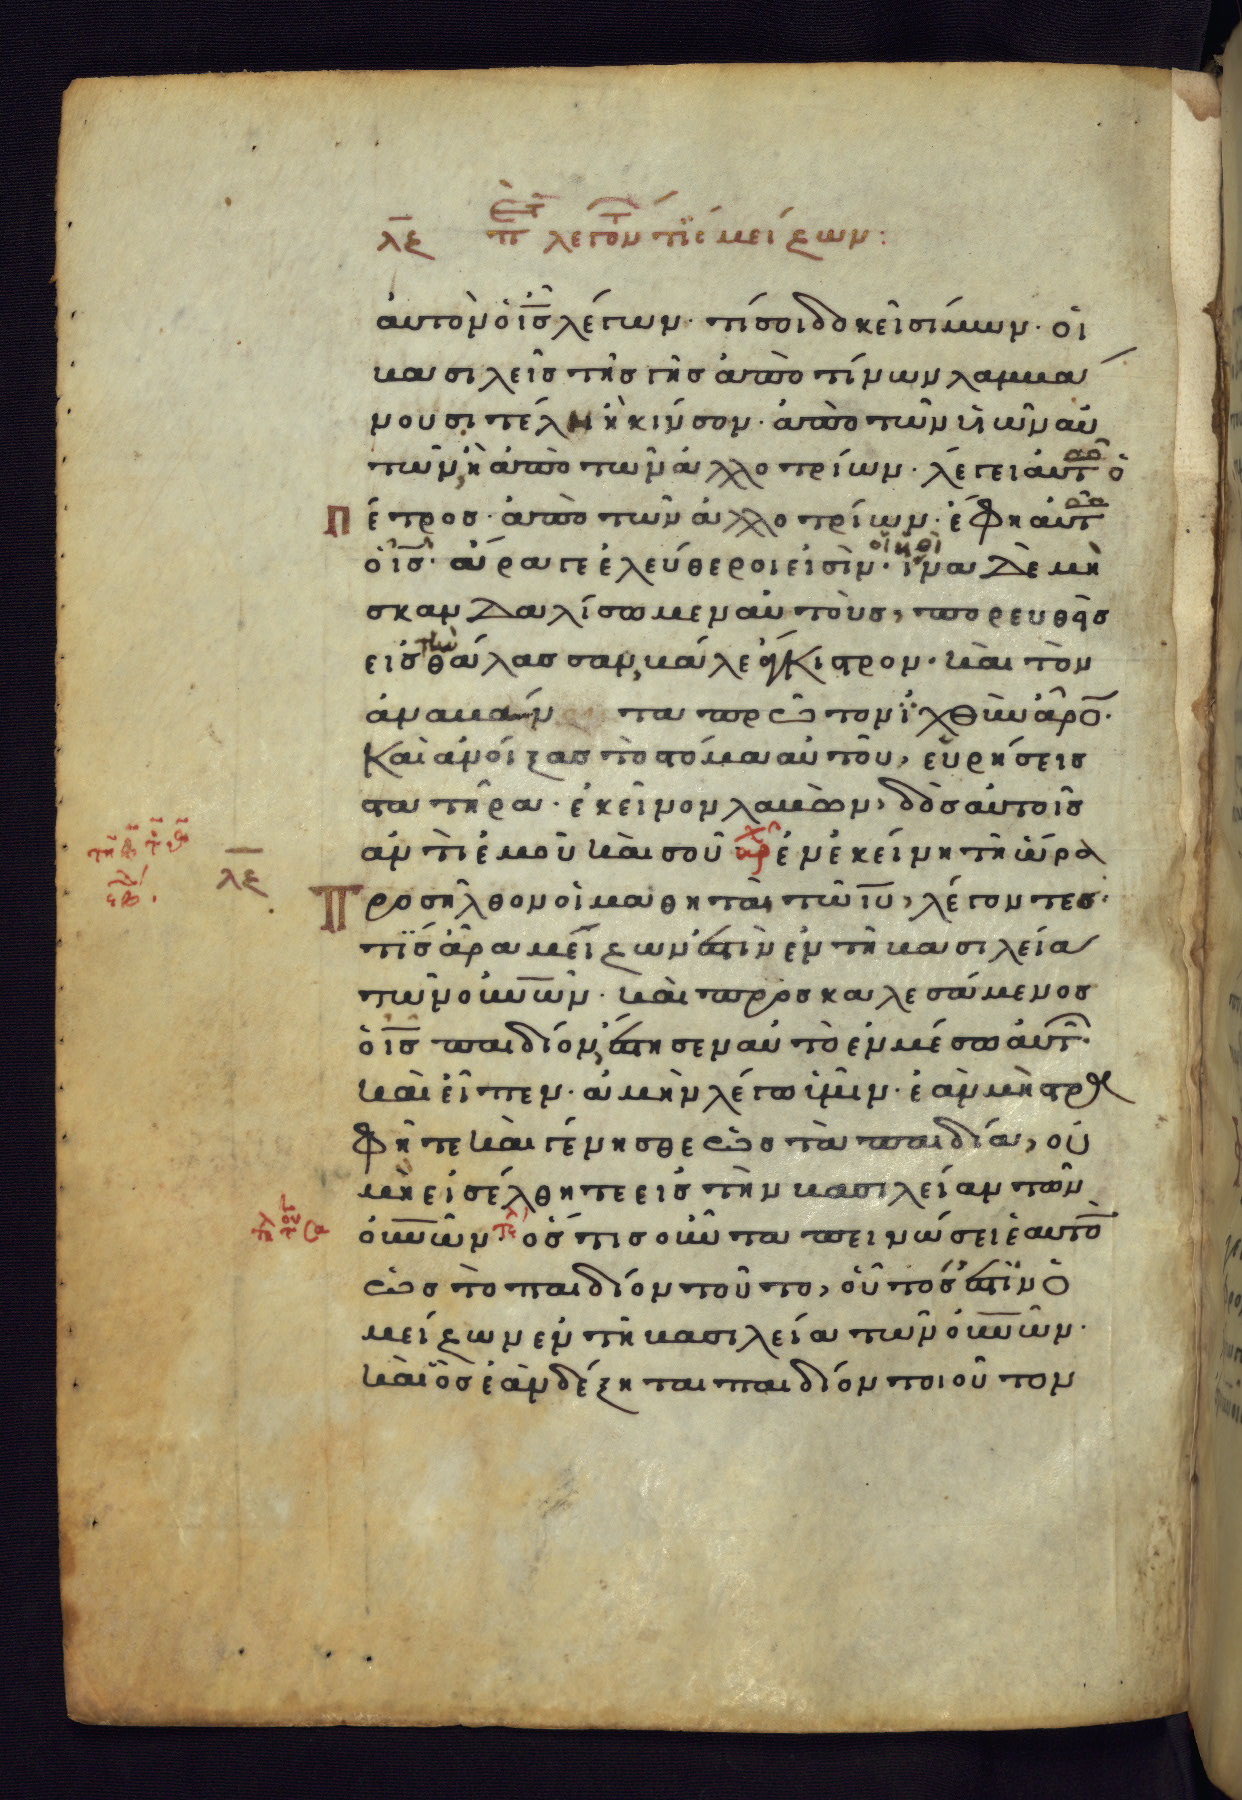 λε π λεγον τις μείζων:
αυτὸν ὁ ις λέγων· τί σοι δοκεῖ σίμων· οἱ
βασιλεῖς τῆς γῆς ἀπὸ τίνων λαμβά
νουσι τέλη ἢ κῖνσον· ἀπὸ τῶν υἱῶν αὑ
τῶν, ἢ ἀπὸ τῶν ἀλλοτρίων· λέγει αὐτ ὁ
Πέτρος· ἀπὸ τῶν ἀλλοτρίων· ἔφη αὐτ
ὁ ις· ἄρα γε ἐλεύθεροι εἰσὶν· οἱ υἱοὶ ἵνα δὲ μὴ
σκανδαλίσωμεν αὐτοὺς, πορευθεὶς
εἰς τὴν θάλασσαν, βάλε ἄγκιστρον· καὶ τὸν
ἀναβάν τα πρῶτον ἰχθὺν ἆρον·
Καὶ ἀνοίξας τὸ στόμα αὐτοῦ, εὑρήσεις
στατῆρα· ἐκεῖνον λαβὼν, δὸς αὐτοῖς
ἀντὶ ἐμοῦ καὶ σοῦ ἐν ἐκείνη τῆ ὥρα
λε Προσῆλθον οἱ μαθηταὶ τῶ ιυ, λέγοντες·
τίς ἄρα μείζων ἐστὶν ἐν τῆ βασιλεία
τῶν οὐνῶν· καὶ προσκαλεσάμενος
ὁ ις παιδίον, ἔστησεν αὐτὸ ἐν μέσω αὐτ·
καὶ εἶπεν· ἀμὴν λέγω ὑμῖν· ἐὰν μὴ στρα
φῆτε καὶ γένησθε ὡς τὰ παιδία, οὐ
μὴ εἰσέλθητε εἰς τὴν βασιλείαν τῶν
οὐνῶν ὅστις οὖν ταπεινώσει ἑαυτὸ
ὡς τὸ παιδίον τοῦτο, οὗτός ἐστιν ὁ
μείζων ἐν τῆ βασιλεία τῶν οὐνῶν·
καὶ ὃς ἐὰν δέξηται παιδίον τοιοῦτον